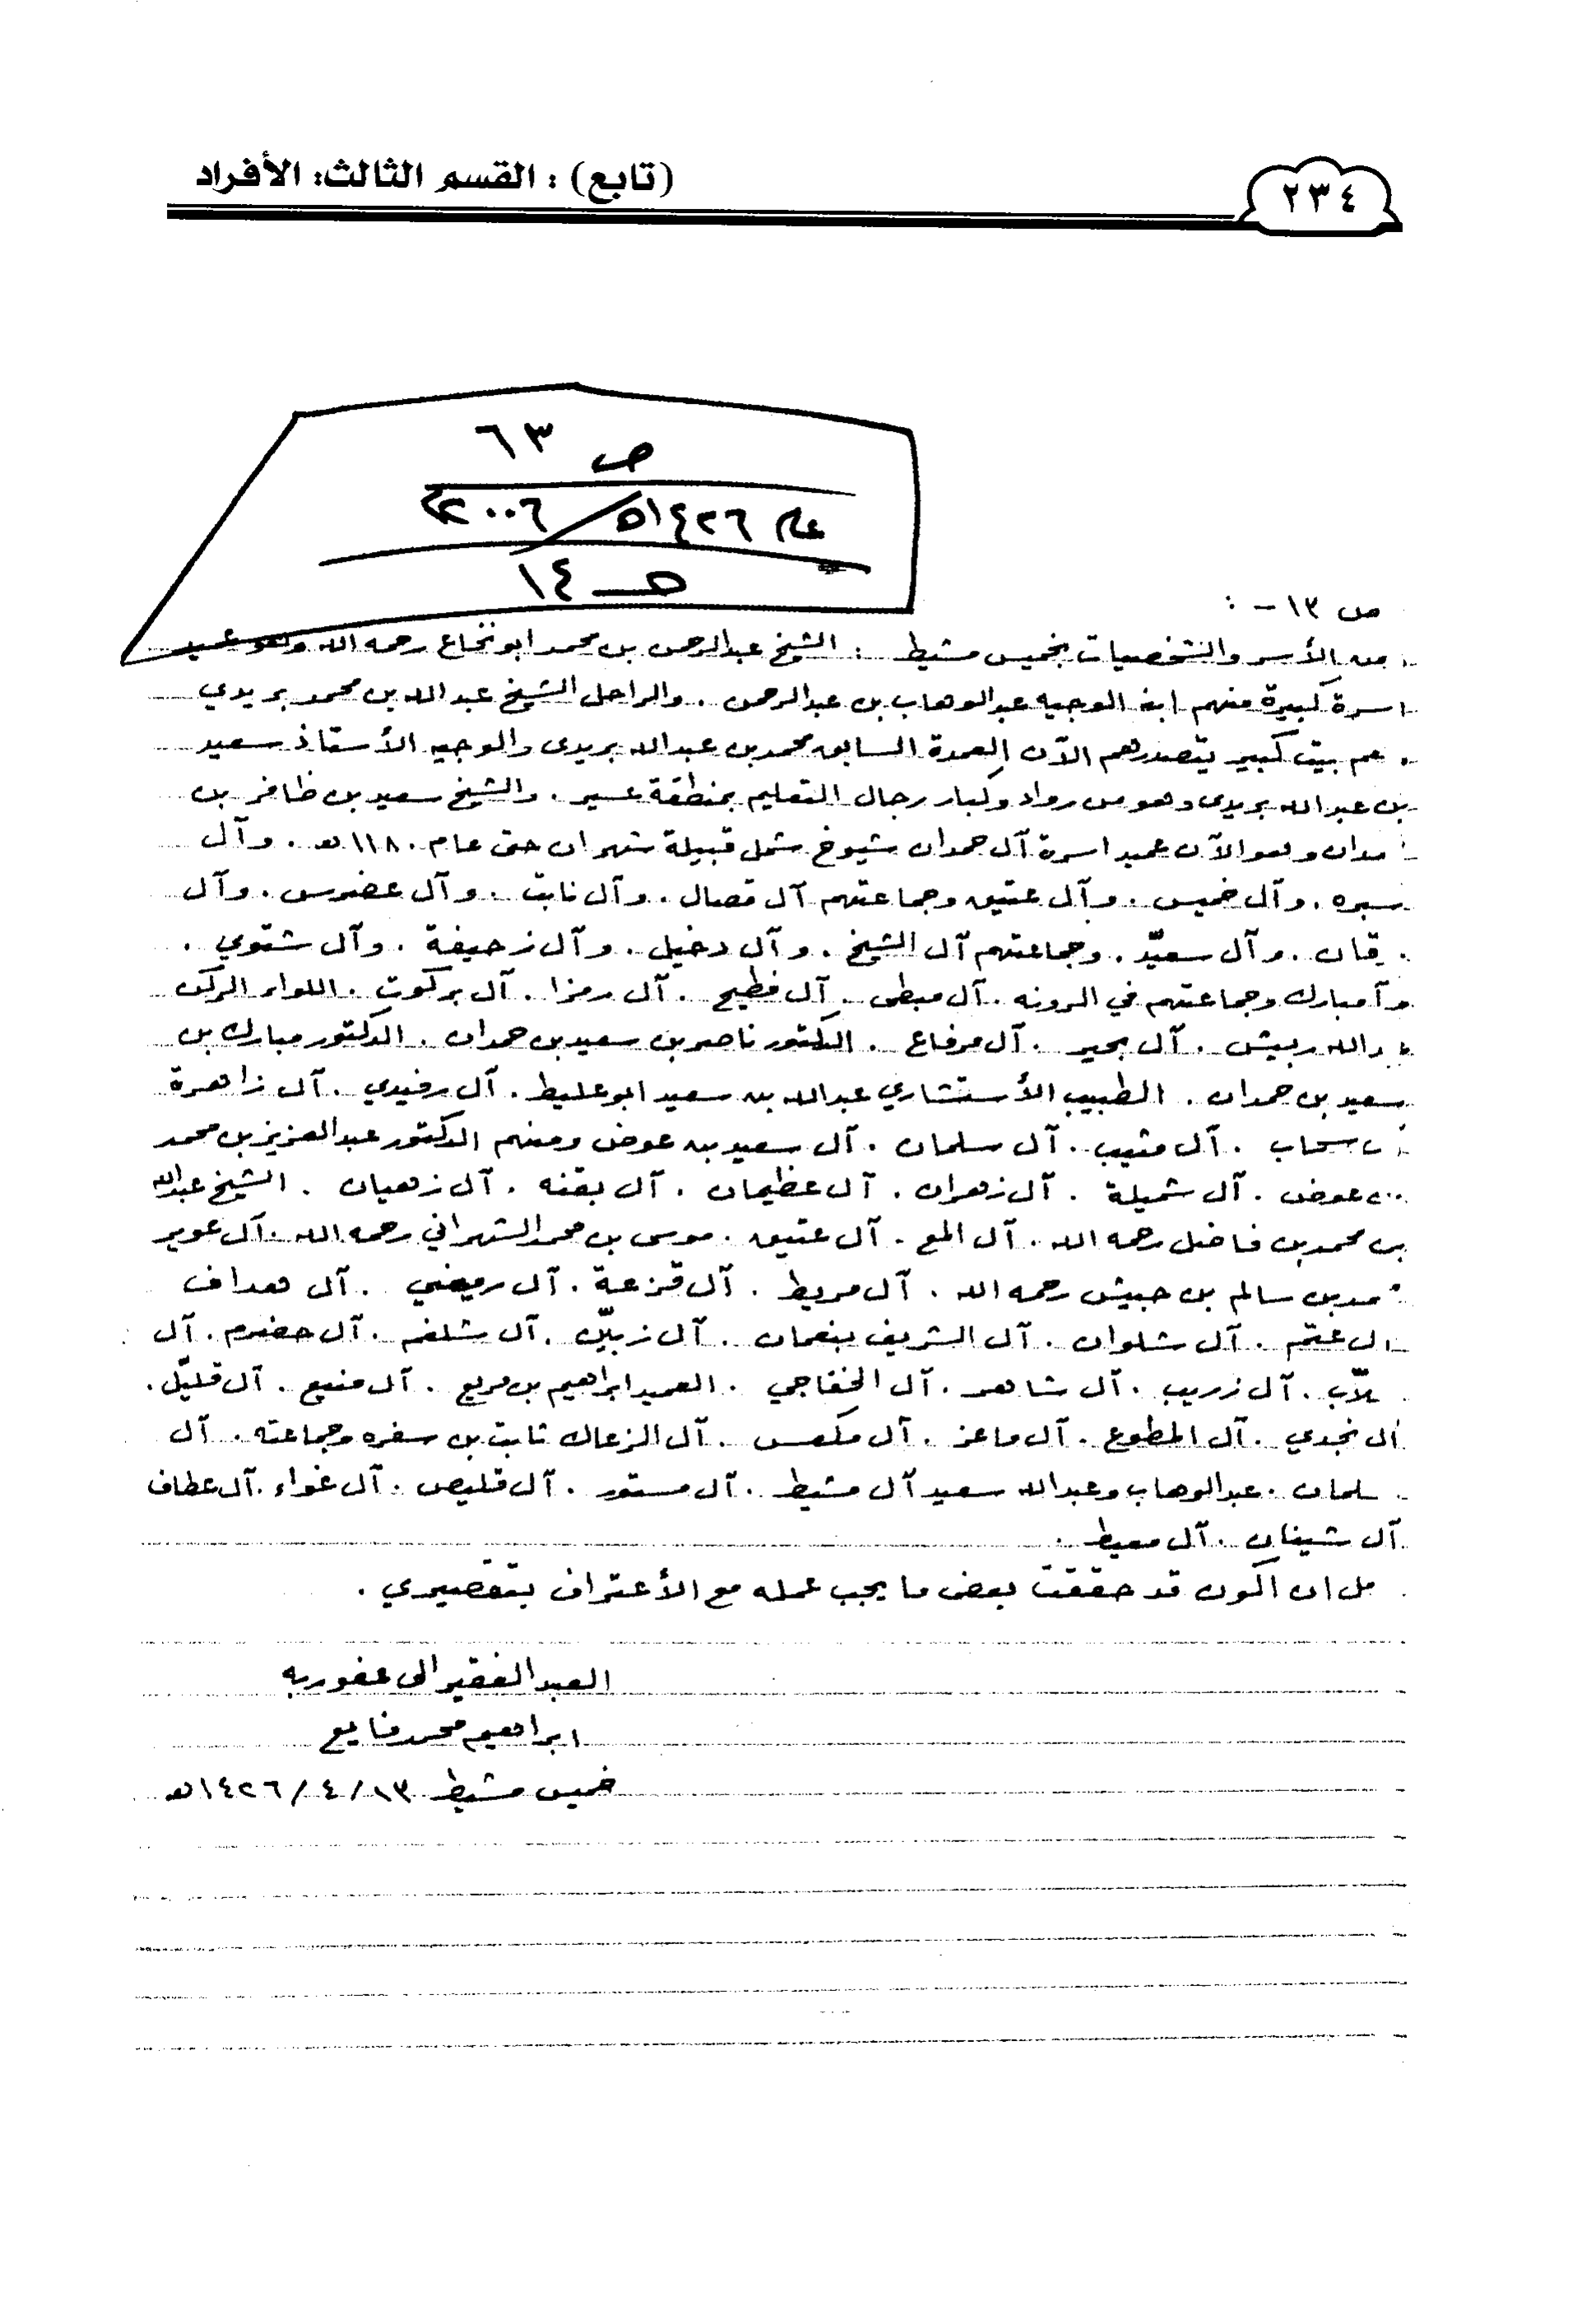 ٢٣٤
(تابع) : القسم الثالث: الأفراد
ص ٦٣
عام ١٤٢٦هـ/٢٠٠٦م
هـ ١٤
ص ١٣ - :
من الأسر والشخصيات بخميس مشيط : الشيخ عبدالرحمن بن محمد ابو نخاع رحمه الله وهو عميد
اسرة كبيرة منهم ابنه الوجيه عبدالوهاب بن عبدالرحمن . والراحل الشيخ عبدالله بن محمد بريدي
عم بيت كبير يتصدرهم الآن العمدة السابق محمد بن عبدالله بريدي والوجيه الأستاذ سعيد
بن عبدالله بريدي وهو من رواد وكبار رجال التعليم بمنطقة عسير . والشيخ سعيد بن ظافر بن
مدان وهو الآن عميد اسرة آل حمدان شيوخ شمل قبيلة شهران حتى عام ١١٨٠هـ . وآل
سبره . وآل خميس . وآل عتيق وجماعتهم آل قصال . وآل ثابت . وآل عضرس . وآل
قان . وآل سعيّد . وجماعتهم آل الشيخ . وآل دخيل . وآل زحيفة . وآل شتوي .
وآ مبارك وجماعتهم في الرونه . آل مبطي . آل فطيح . آل رمزا . آل بركوت . اللواء الركن
دالله ربيش . آل بحير . آل مرفاع . الدكتور ناصر بن سعيد بن حمدان . الدكتور مبارك بن
سعيد بن حمدان . الطبيب الأستشاري عبدالله بن سعيد ابو عليط . آل رفيدي . آل زاهرة
سحاب . آل مثيب . آل سلمان . آل سعيد بن عوض ومنهم الدكتور عبدالعزيز بن محمد
عوض . آل شميلة . آل زهران . آل عظيمان . آل بقنه . آل زهيان . الشيخ عبدالله
بن محمد بن فاضل رحمه الله . آل المع . آل عتيق . موسى بن محمد الشهراني رحمه الله . آل عوير
مد بن سالم بن حبيش رحمه الله . آل مريط . آل قزعة . آل رميضي . آل هداف
ال عثم . آل شلوان . آل الشريف بنعمان . آل زبيّن . آل شلغم . آل حضرم . آل
لاّب . آل زريب . آل شاهر . آل الخفاجي . العميد ابراهيم بن مريع . آل منيع . آل قليّل .
ال نجدي . آل المطوع . آل ماعز . آل مكعس . آل الزعاك ثابت بن سفره وجماعته . آل
سلمان . عبدالوهاب وعبدالله سعيد آل مشيط . آل مستور . آل قليص . آل غواء . آل عطاف
آل شينان . آل معيط .
مل ان اكون قد حققت بعض ما يجب عمله مع الأعتراف بتقصيري .
العبد الفقير الى عفو ربه
ابراهيم محمد فايع
خميس مشيط ١٣/٤/١٤٢٦هـ